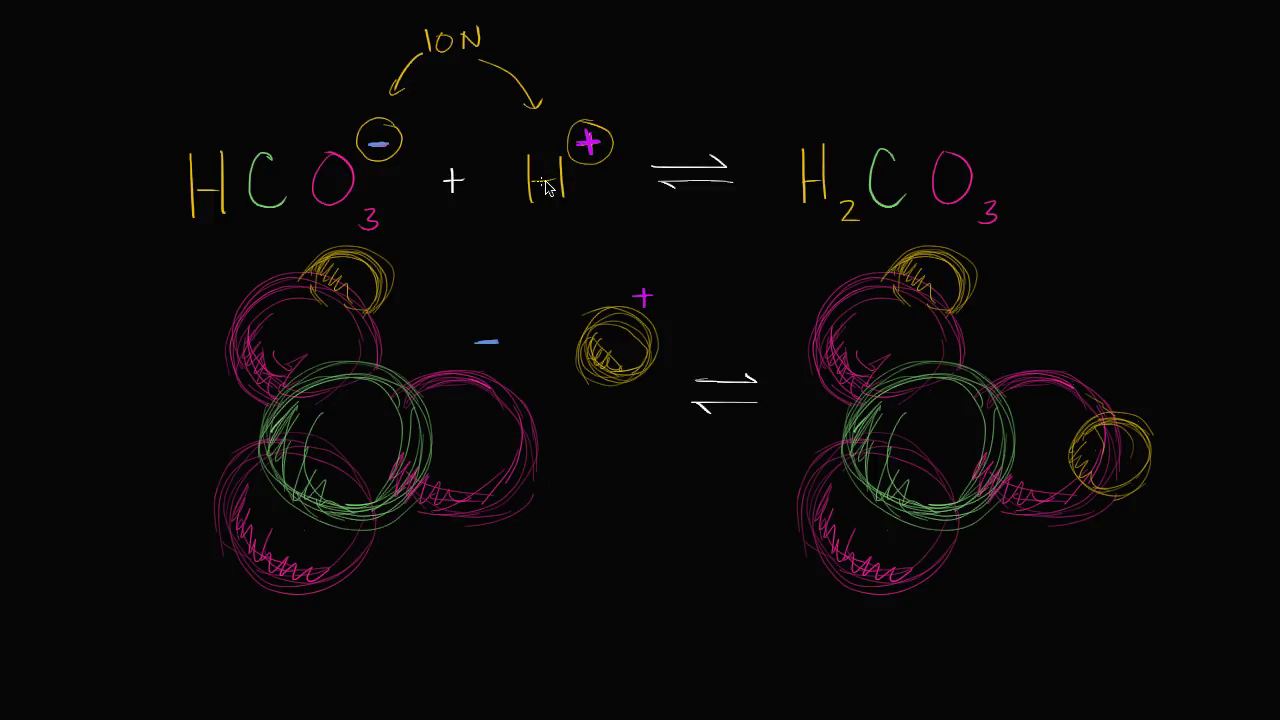 ION
HCO₃⁻ + H⁺ ⇌ H₂CO₃
- + ⇌